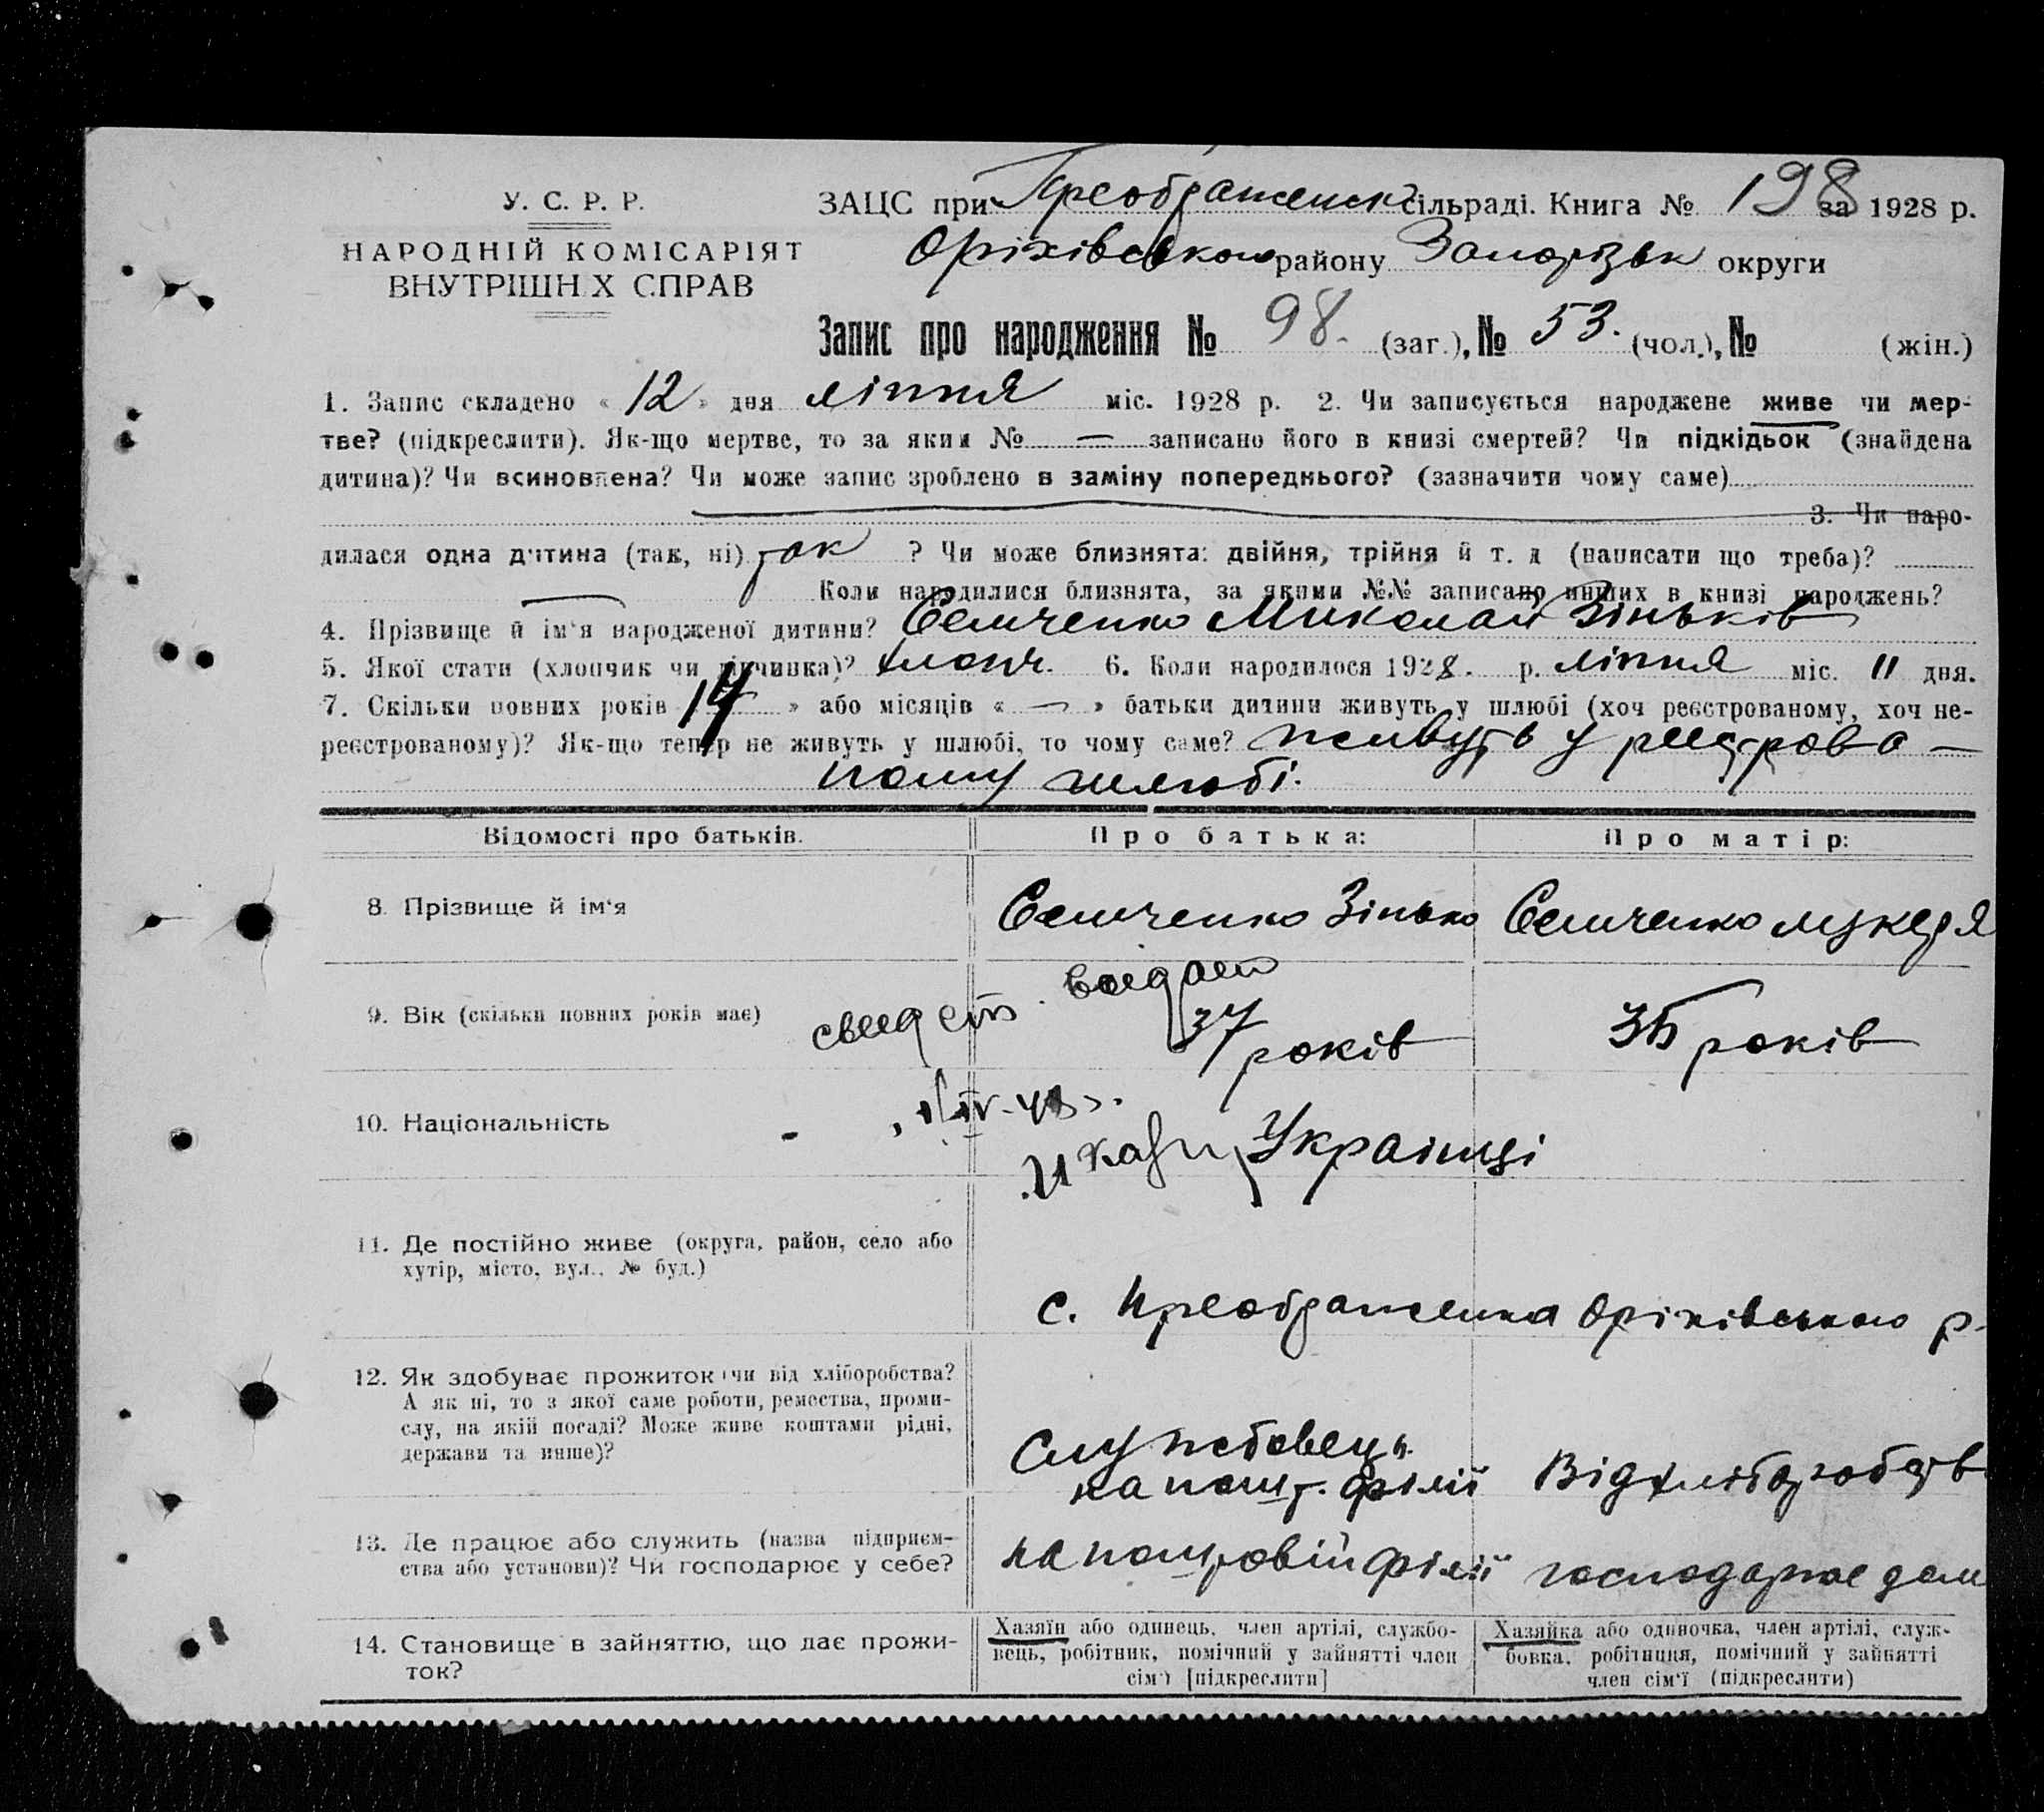 У. С. Р. Р.
НАРОДНІЙ КОМІСАРІЯТ
ВНУТРІШН Х СПРАВ
ЗАЦС при Преображенск сільраді. Книга № 198 за 1928 р.
Оріхівського району Запорізьк округи
Запис про народження № 98. (заг.), № 53. (чол.), № (жін.)
1. Запис складено « 12 » дня липня міс. 1928 р. 2. Чи записується народжене живе чи мер-
тве? (підкреслити). Як-що мертве, то за яким № — записано його в книзі смертей? Чи підкідьок (знайдена
дитина)? Чи всиновлена? Чи може запис зроблено в заміну попереднього? (зазначити чому саме)
3. Чи наро-
дилася одна дитина (так, ні) так ? Чи може близнята: двійня, трійня й т. д (написати що треба)?
— Коли народилися близнята, за якими №№ записано инших в книзі народжень?
4. Прізвище й ім'я народженої дитини? Семченко Миколай Зіньків
5. Якої стати (хлопчик чи дівчинка)? хлопч. 6. Коли народилося 1928. р. липня міс. 11 дня.
7. Скільки повних років « 14 » або місяців « — » батьки дитини живуть у шлюбі (хоч реєстрованому, хоч не-
реєстрованому)? Як-що тепер не живуть у шлюбі, то чому саме? живуть у реєстрова —
ному шлюбі.
Відомості про батьків. Про батька: Про матір:
8. Прізвище й ім'я Семченко Зінько Семченко Лукеря
9. Вік (скільки повних років має) 37 років 35 років
свидет. видан
10. Національність Українці
11. Де постійно живе (округа, район, село або
хутір, місто, вул., № буд.)
с. Преображенка Оріхівського р.
12. Як здобуває прожиток (чи від хліборобства?
А як ні, то з якої саме роботи, ремества, проми-
слу, на якій посаді? Може живе коштами рідні,
держави та инше)?
Службовець
на пошт. філії Від хлібороботв
13. Де працює або служить (назва підприєм-
ства або установи)? Чи господарює у себе?
на поштовій філії господарює дом
14. Становище в зайняттю, що дає прожи-
ток?
Хазяїн або одинець, член артілі, службо-
вець, робітник, помічний у зайнятті член
сім'ї [підкреслити]
Хазяйка або одиночка, член артілі, служ-
бовка, робітниця, помічний у зайнятті
член сім'ї (підкреслити)